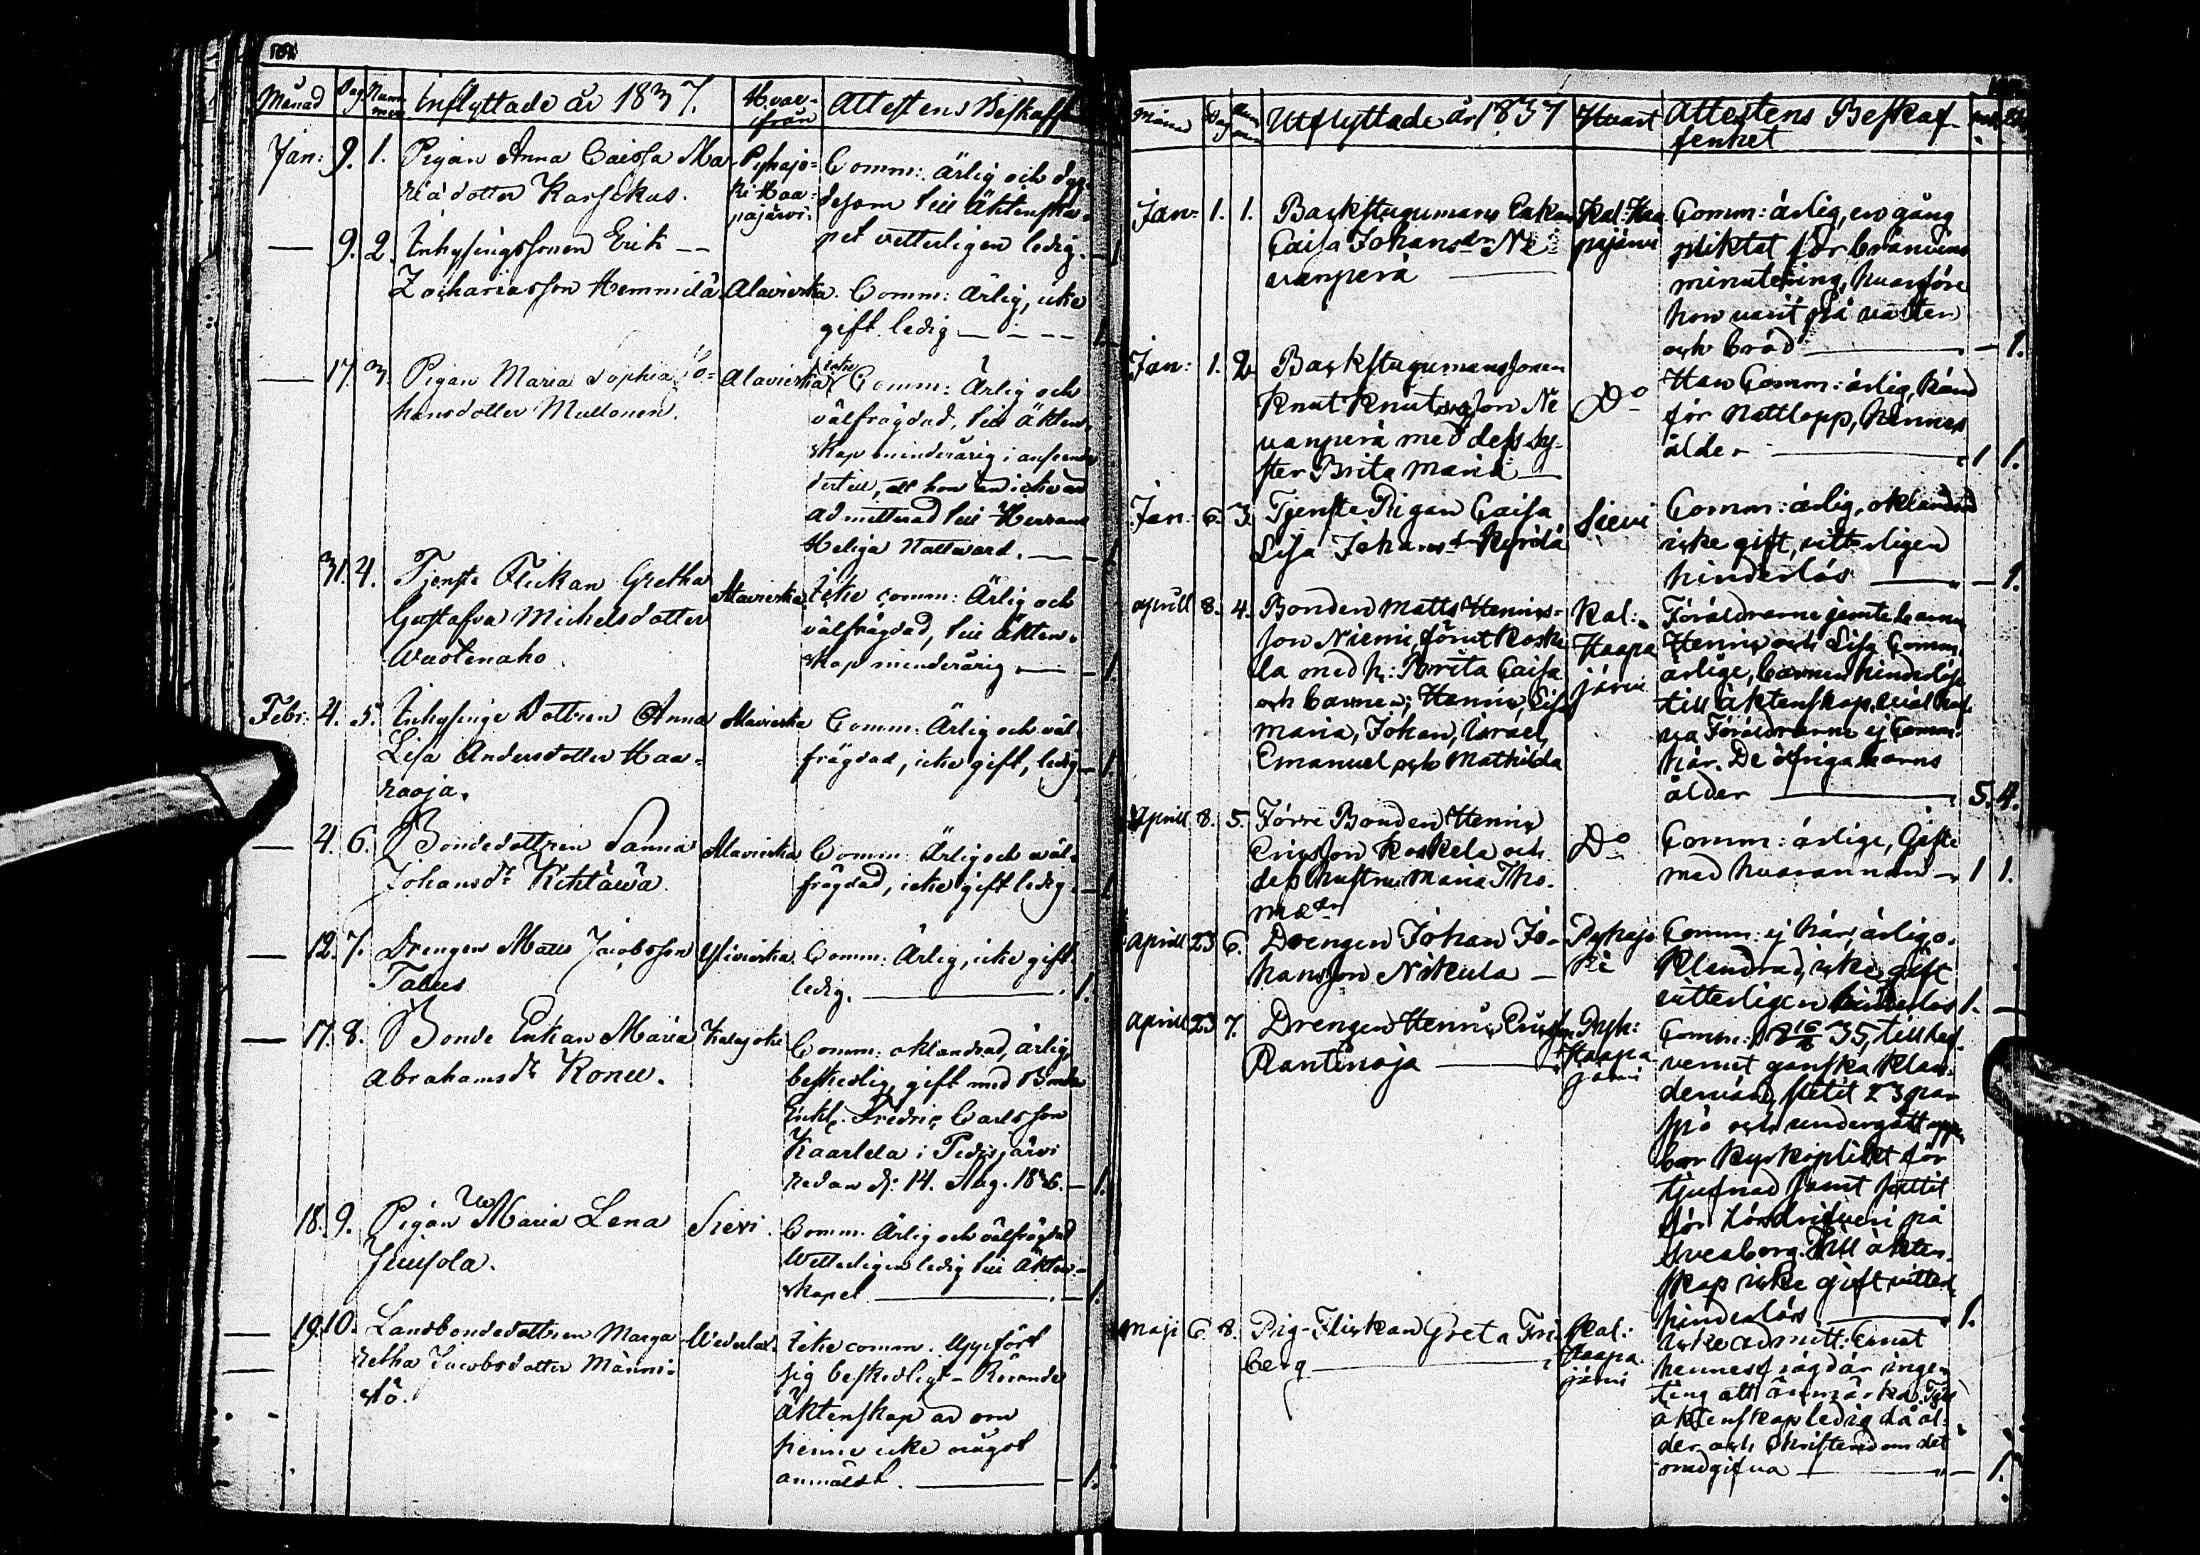 Månad Dag Num mer Inflyttade år 1837. Hvar-
ifrån Attestens Beskaff
Jan: 9. 1. Pigan Anna Caissa Ma
ria dotter Karsikas.
Pyhajo=
ki Haa=
pajärvi.
Comm: Ärlig och dyg
desam till äktenska
pet vetterligen ledig. — 1
— 9. 2. Inhysingssonen Erik —
Zachariasson Hemmilä
Alavieska. Comm: Ärlig, icke
gift ledig — — — 1
— 17. 3. Pigan Maria Sophia Jo=
hansdotter Mullonen.
Alavieska icke Comm: Ärlig och
välfrägdad, till äkten
skap minderårig i anseende
dertill, att hon än icke är
admitterad till Herrans
Heliga Nattward. — 1
31. 4. Tjenste Flickan Gretha
Gustafva Michelsdotter
Wuotenaho
Alavieska. icke comm: Ärlig och
välfrägdad, till äkten=
skap minderårig — 1
Febr: 4. 5. Inhysinge Dottren Anna
Lisa Andersdotter Haa=
raoja.
Alavieska Comm: Ärlig och väl
frägdad, icke gift, ledig — 1.
— 4. 6. Bondedottren Sanna
Johansdr Kihtäwä.
Alavieska Comm: Ärlig och wäl
frägdad, icke gift ledig. — 1
— 12. 7. Drengen Matts Jacobsson
Talus
Ylivieska. Comm: Ärlig, icke gift
ledig. — 1.
— 17. 8. Bonde Enkan Maria
Abrahamsdr Konu.
Kalajoki Comm: oklandrad, ärlig,
beskedlig, gift med Bonde
Enkl. Fredric Carlsson
Kaarlela i Pidisjärvi
redan d: 14. Aug. 1836. — 1.
18. 9. Pigan Maria Lena
Juusola.
Sievi. Comm. Ärlig och välfrägdad
Wetterligen ledig till Äkten=
skapet — 1.
— 19. 10. Landbondedottren Marga
retha Jacobsdotter Männi=
stö.
Wederlax. icke comm. Uppfört
sig beskedligt — Rörande
Äktenskap är om
henne icke något
anmäldt. — 1.
Månad Dag Utflyttade år 1837 Hvart Attestens Beskaf=
fenhet
Jan: 1. 1. Backstugumans Enkan
Caisa Johansdr Ne=
vanperä —
Kal: Haa
pajärvi
Comm: ärlig, en gång
pliktat för bränvins
minutering, hvarföre
hon varit på vatten
och bröd — 1.
Jan: 1. 2. Backstugumanssonen
Knut Knutsson Ne
vanperä med dess sy=
ster Brita Maria —
Do Han Comm: ärlig, känd
för nattlopp, hennes
ålder — 1 1.
Jan: 6. 3. Tjenste Pigan Caisa
Lisa Johansdr
Sievi Comm: ärlig, oklandrad
icke gift, vitterligen
hinderlös — 1.
aprill 8. 4. Bonden Matts Henrics=
son Niemi, förut Koske
la med h: Brita Caisa
och barnen; Henric, Lisa
Maria, Johan, Israel,
Emanuel och Mathilda
Kal:
Haapa
järvi
Föräldrarne jemte barnen
Henric och Lisa Comm:
ärlige, barnen hinderlöse
till äktenskap,
Föräldrarne ej Comm:
här. De öfriga barns
ålder — 5. 4.
Aprill 8. 5. Förre Bonden Henric
Ericsson Koskela och
dess hustru Maria Tho=
mædr
Do Comm: ärlige, Gifte
med hvarannan — 1 1.
aprill 23 6. Drengen Johan Jo=
hansson Nikula —
Pyhajo
ki
Comm: ej här, ärlig, o=
klandrad, icke gift
vitterligen hinderlös 1. —
aprill 23 7. Drengen Henric Ericsson
Rantinoja —
Pyh:
Haapa
järvi
Comm: 35, till lef=
vernet ganska klan=
dervärd, slitit 23 par
spö och undergått uppen
bar kyrkoplikt för
tjufnad samt suttit
för lösdrifveri på
Sveaborg. Till äkten=
skap icke gift, vitterl.
hinderlös — 1.
maji 6 8. Pig-Flickan Greta Fri
berg —
Kal:
Haapa
järvi
icke admitt: Emot
hennes frägd är ingen
ting att anmärka. Till
äktenskap ledig då ål=
der och skriftend om det
medgifva — 1.